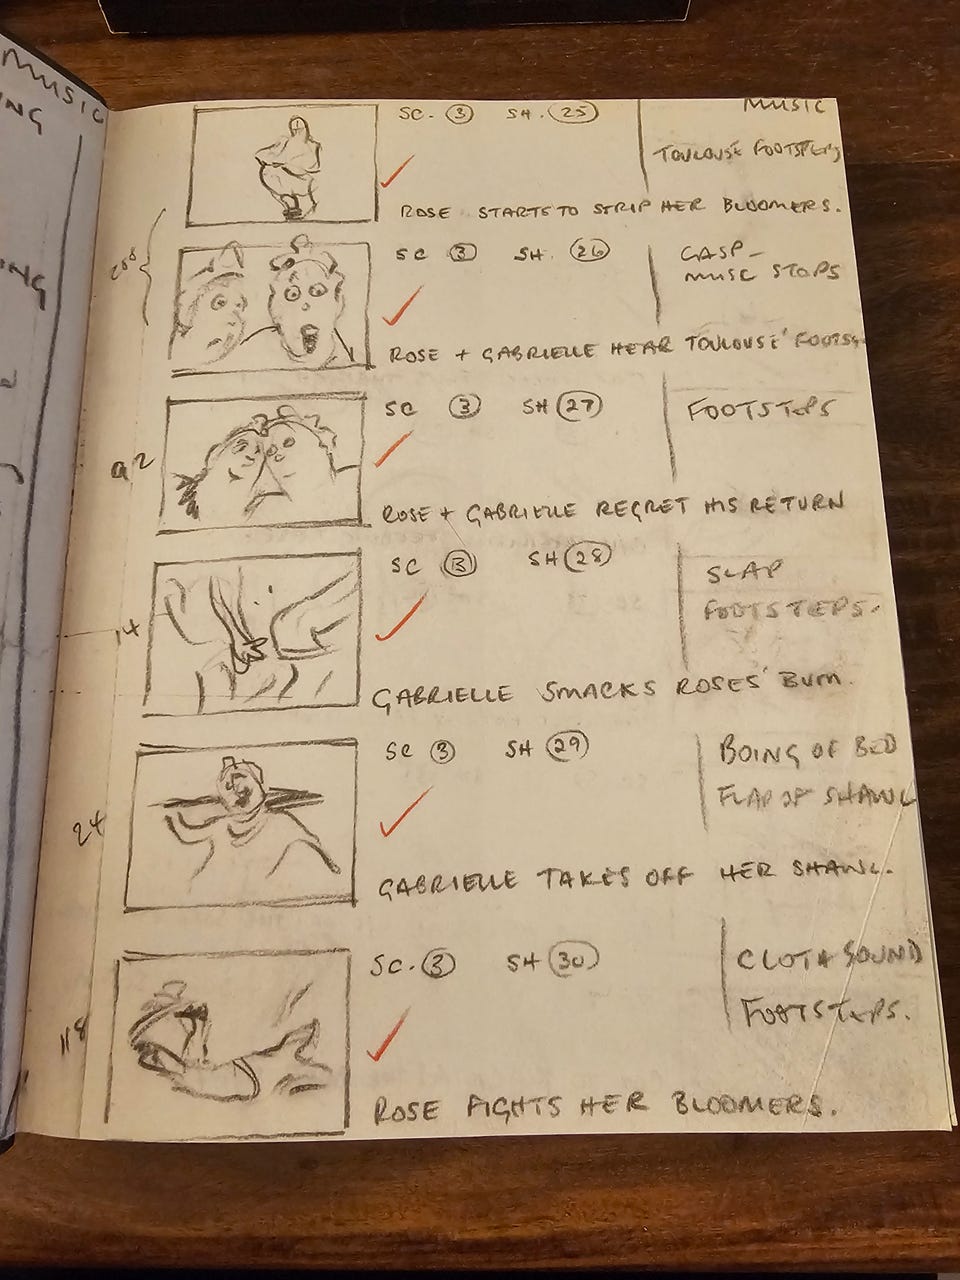 MUSIC
ING
ING
SC. 3 SH. 25
MUSIC
TOULOUSE FOOTSTEPS
ROSE STARTS TO STRIP HER BLOOMERS.
SC 3 SH. 26
GASP -
MUSIC STOPS
ROSE + GABRIELLE HEAR TOULOUSE' FOOTS
92
SC 3 SH 27
FOOTSTEPS
ROSE + GABRIELLE REGRET HIS RETURN
14
SC 3 SH 28
SLAP
FOOTSTEPS.
GABRIELLE SMACKS ROSES' BUM.
24
SC 3 SH 29
BOING OF BED
FLAP OF SHAWL
GABRIELLE TAKES OFF HER SHAWL.
118
SC. 3 SH 30
CLOTH SOUND
FOOTSTEPS.
ROSE FIGHTS HER BLOOMERS.